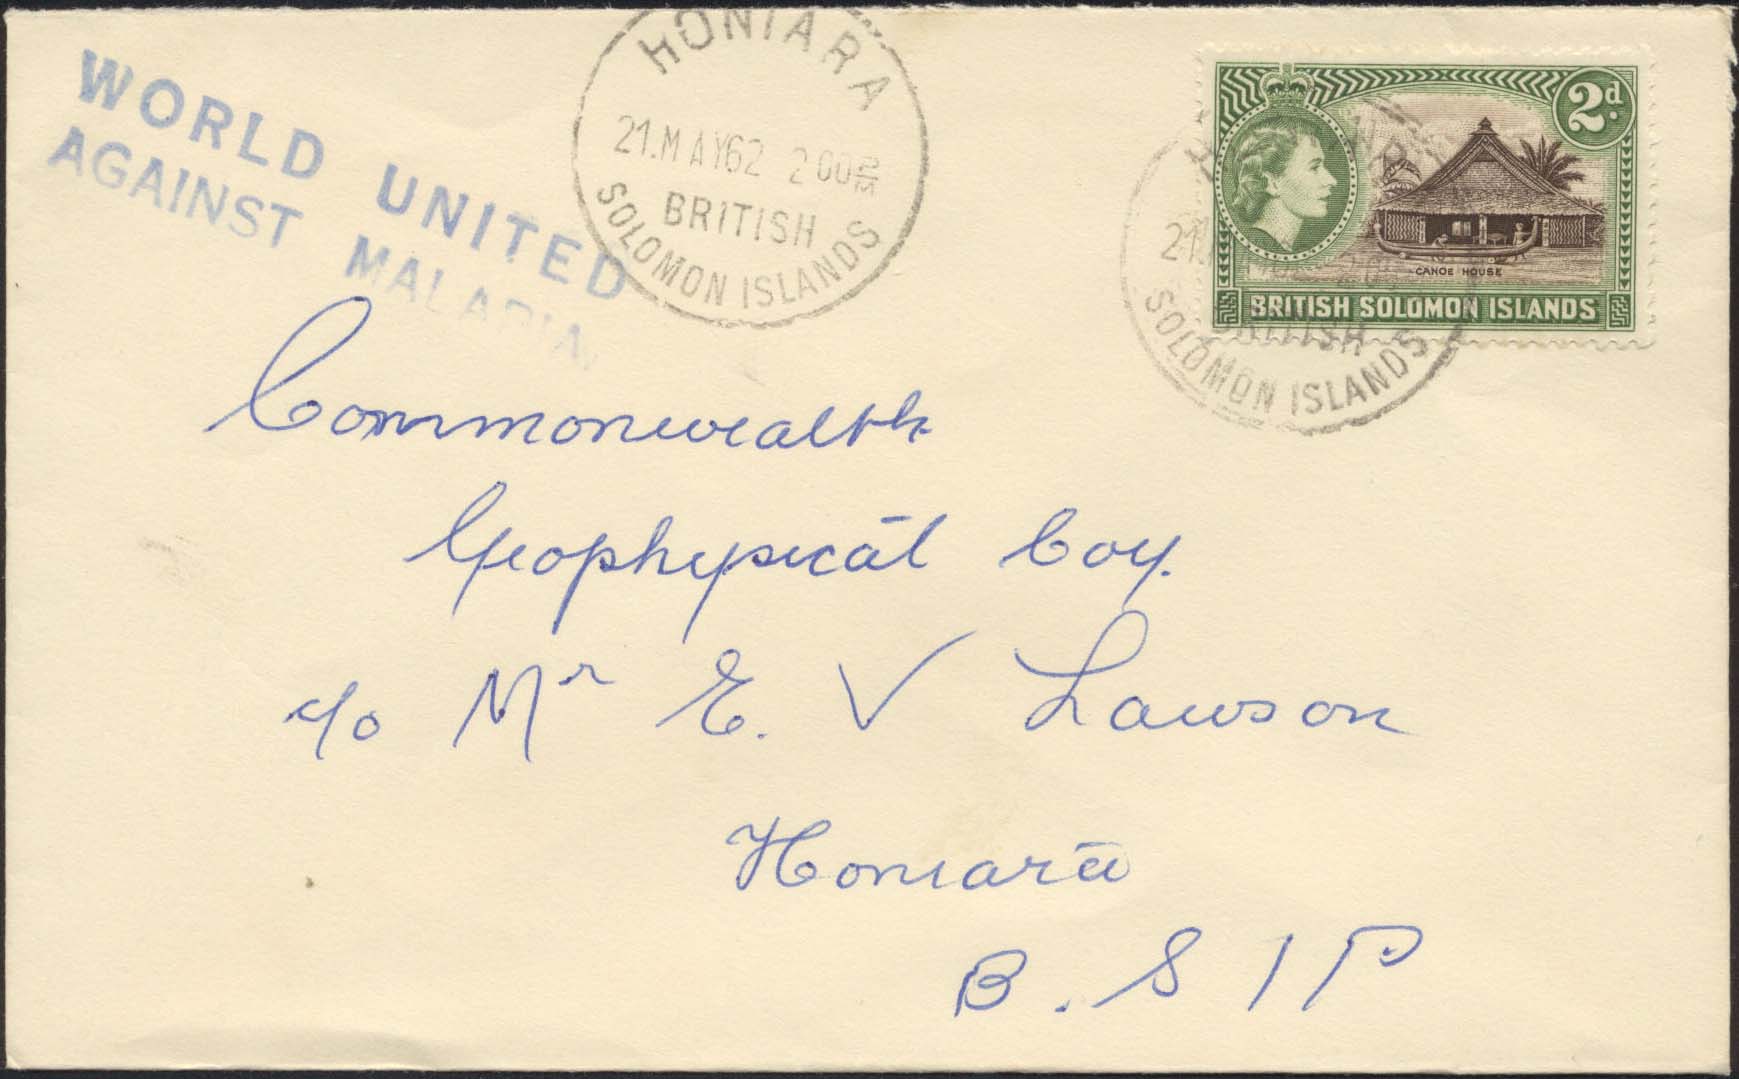 WORLD UNITED
AGAINST MALARIA
HONIARA
21.MAY62 2 00PM
BRITISH
SOLOMON ISLANDS
2d
CANOE HOUSE
BRITISH SOLOMON ISLANDS
21.
BRITISH
SOLOMON ISLANDS
Commonwealth
Geophysical Coy.
c/o Mr E. V Lawson
Honiara
B. S I P